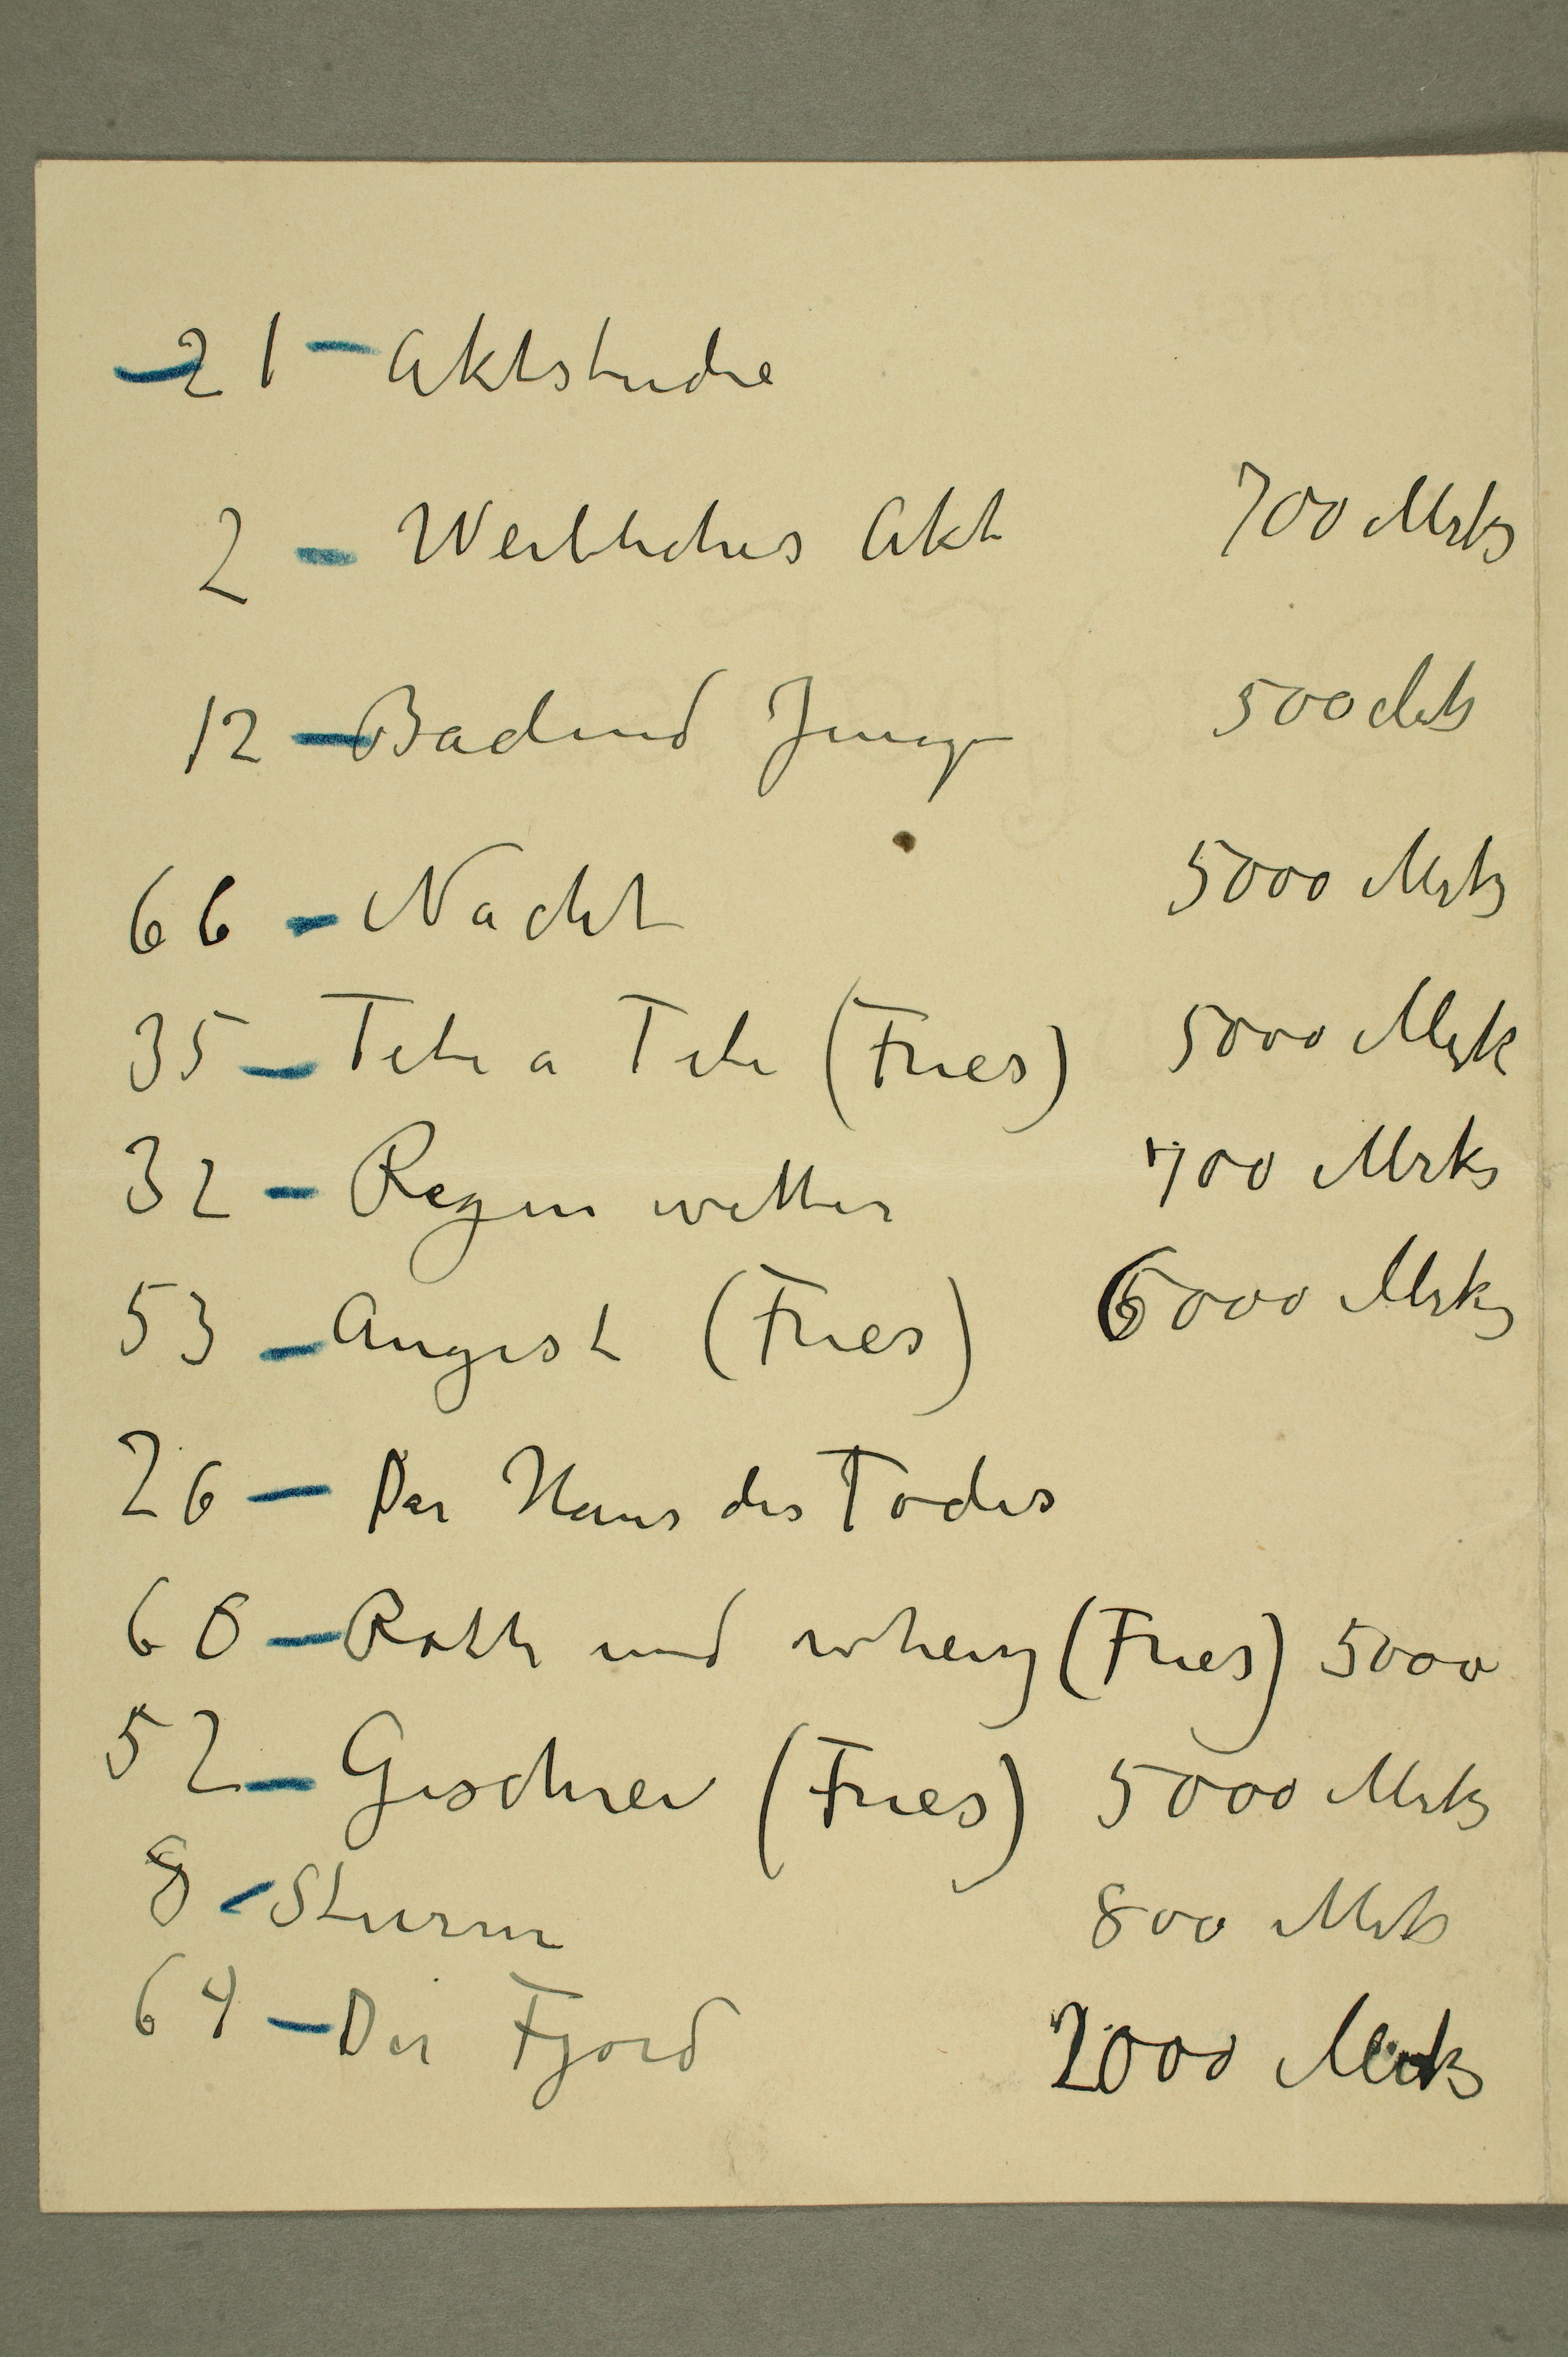 21 – Aktstudie
2 – Weibliches Akt 700 Mrks
12 – Badend Junge 500 Mrks
66 – Nacht 5000 Mrks
35 – Tete a Tete (Fries) 5000 Mrk
32 – Regen wetter 700 Mrks
53 – Angest (Fries) 6000 Mrks
26 – Das Haus des Todes
60 – Roth und (Fries) 5000
52 – Geschrei (Fries) 5000 Mrks
8 – Sturm 800 Mrks
64 – Der Fjord 2000 Mrks